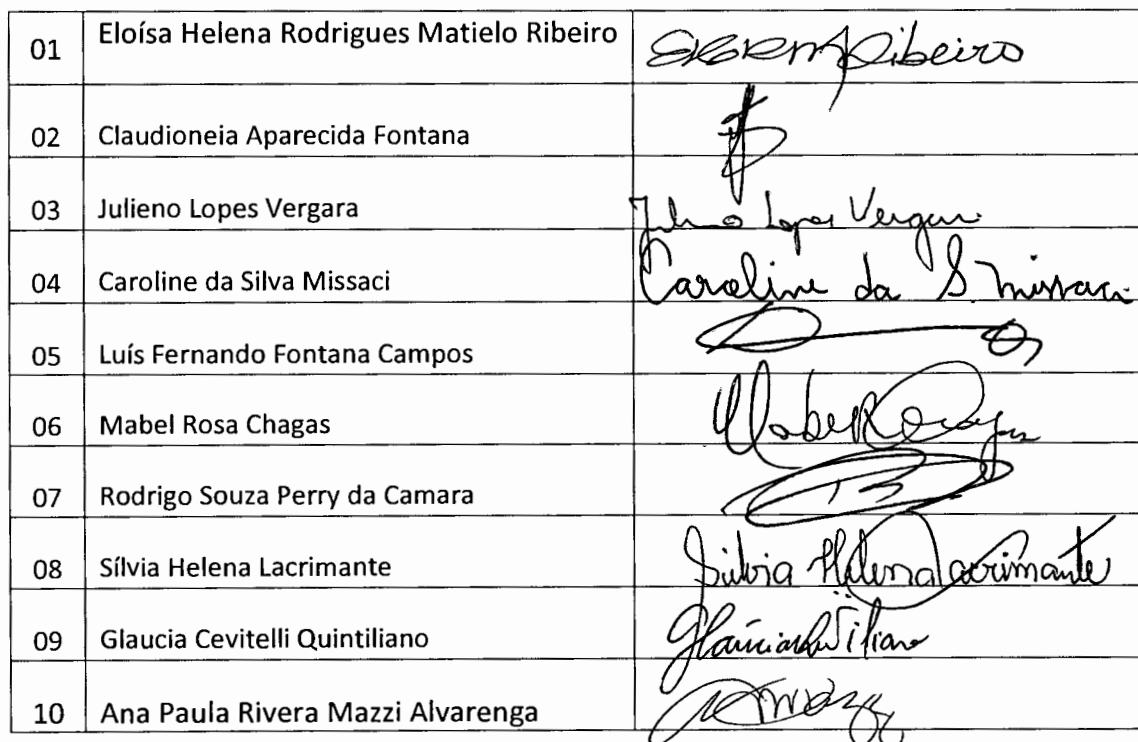 01 Eloísa Helena Rodrigues Matielo Ribeiro EHRM Ribeiro
02 Claudioneia Aparecida Fontana
03 Julieno Lopes Vergara Julieno Lopes Vergara
04 Caroline da Silva Missaci Caroline da S. Missaci
05 Luís Fernando Fontana Campos
06 Mabel Rosa Chagas Mabel R Chagas
07 Rodrigo Souza Perry da Camara
08 Sílvia Helena Lacrimante Silvia Helena Lacrimante
09 Glaucia Cevitelli Quintiliano
10 Ana Paula Rivera Mazzi Alvarenga